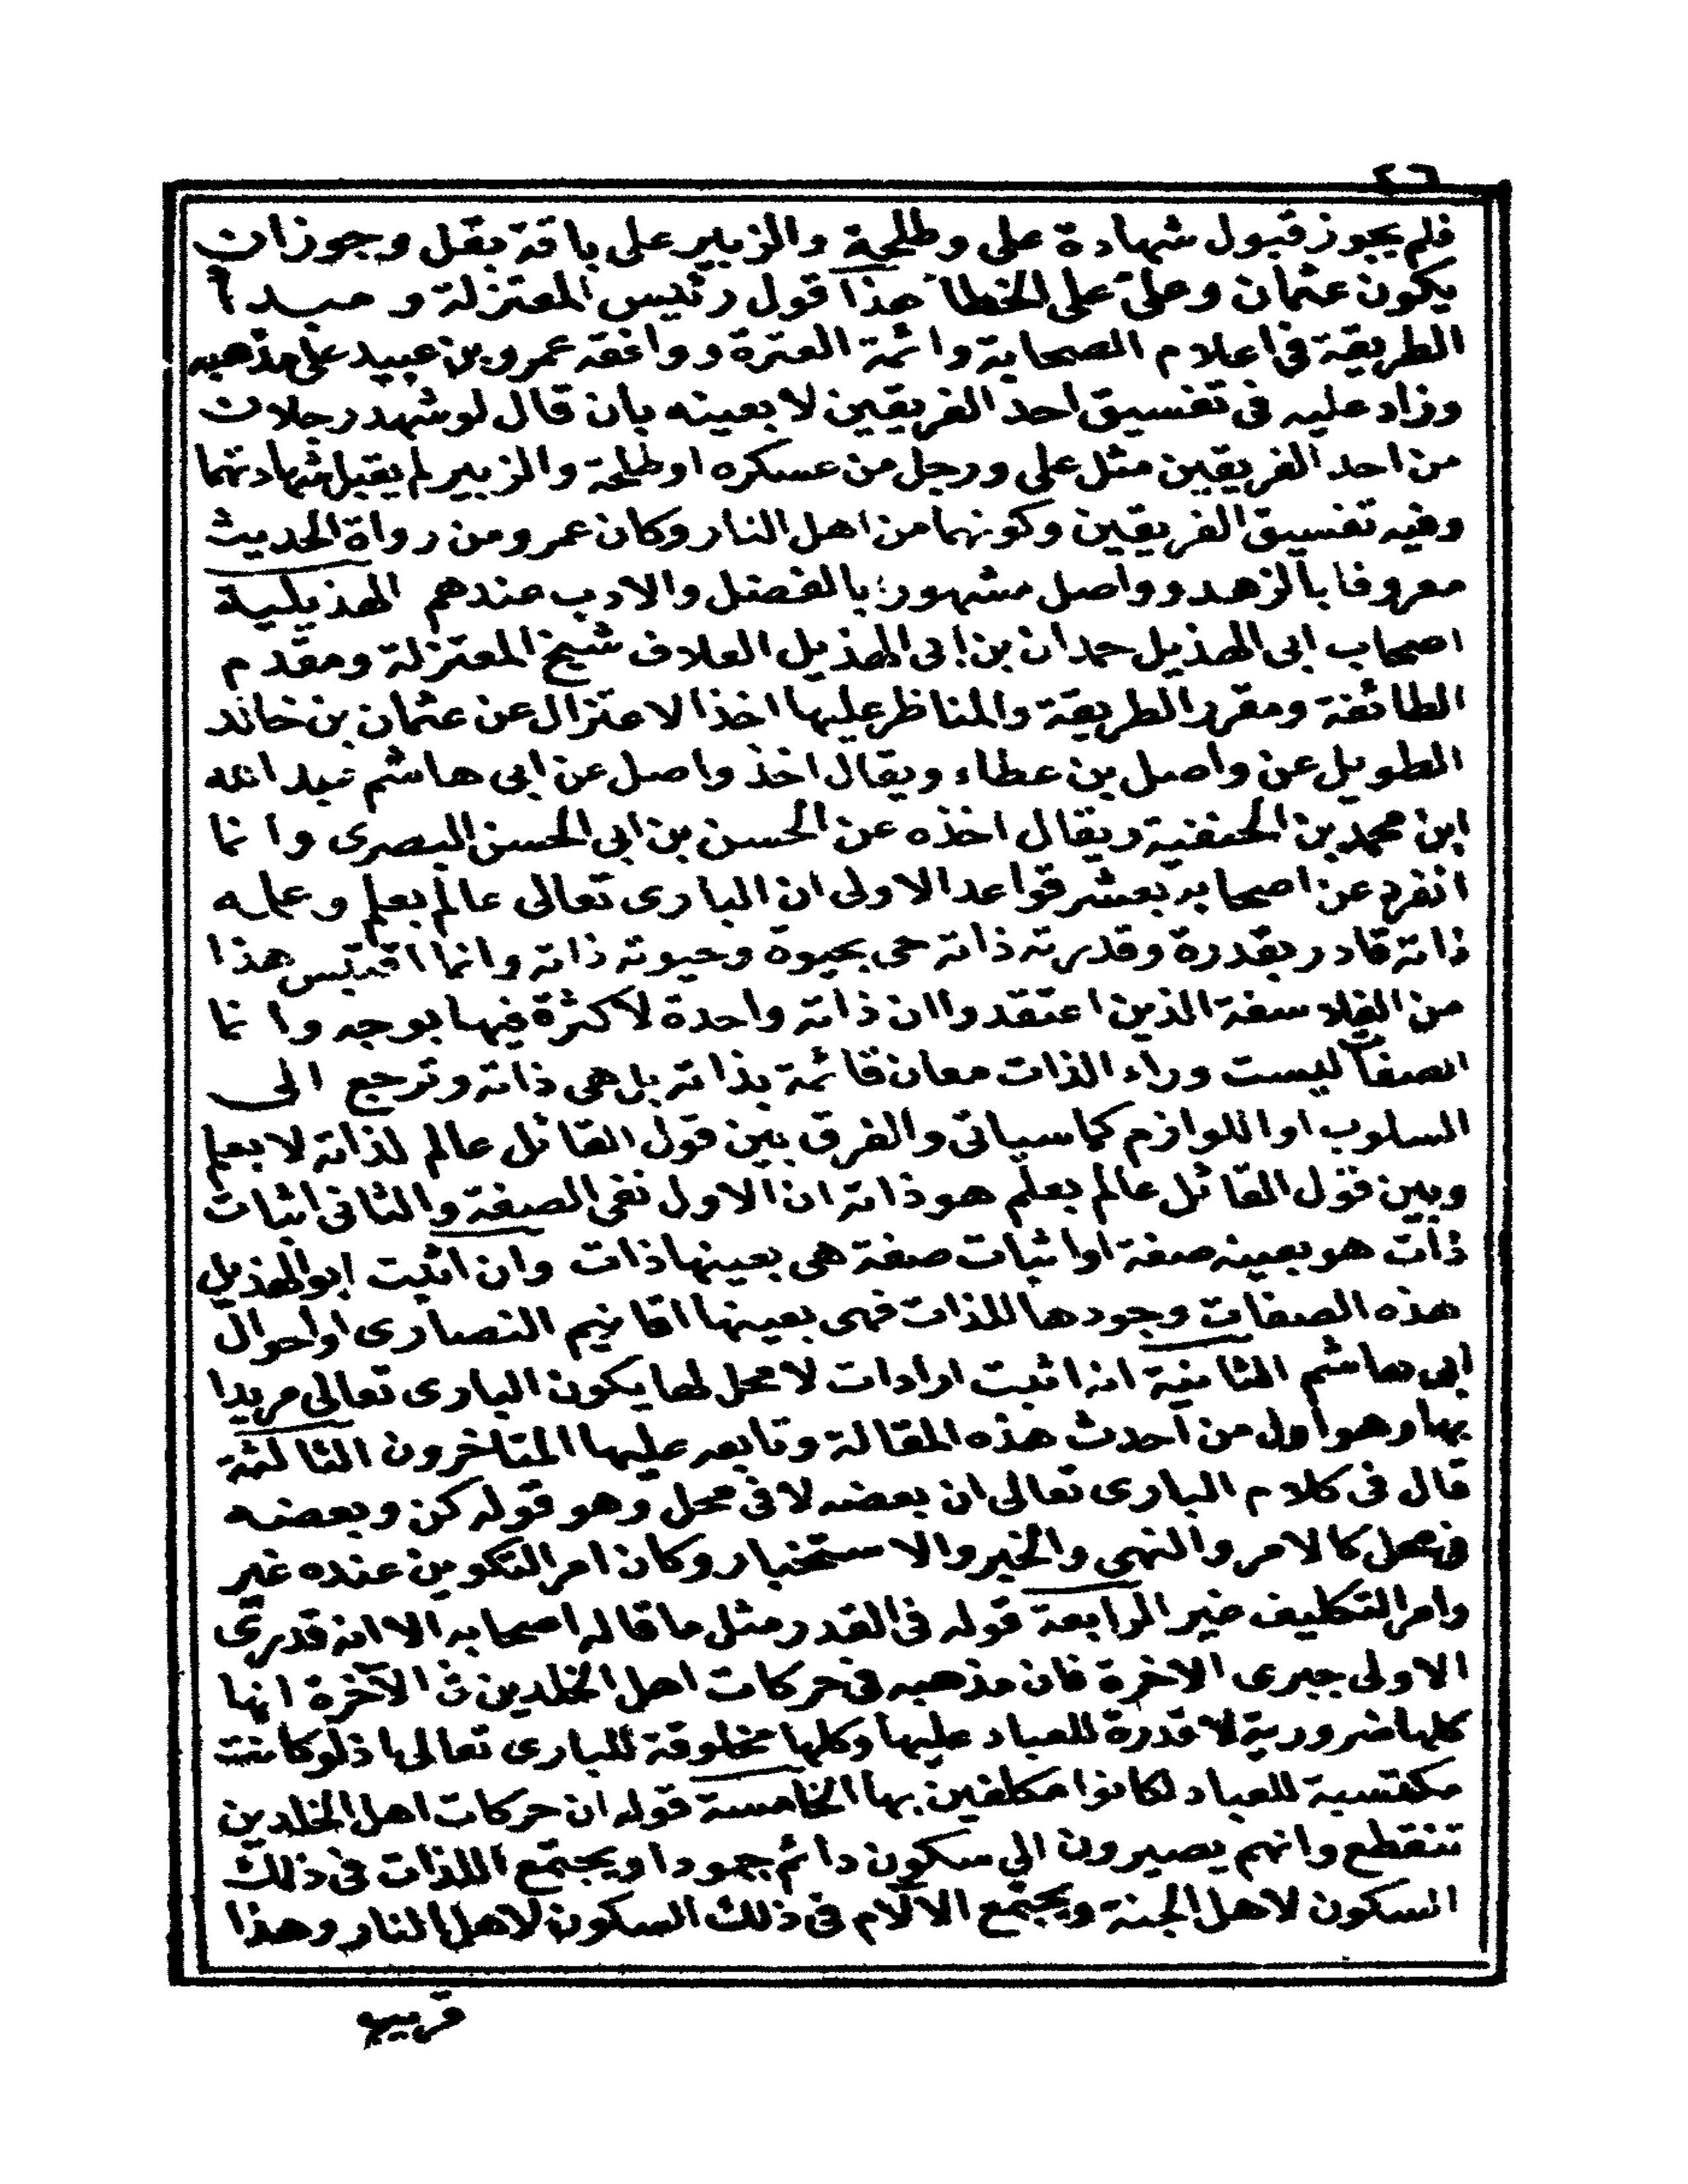 ٢٦
فلم يجوز قبول شهادة على وطلحة والزبير على باقة بقل وجوزان
يكون عثمان وعلىّ على الخطأ هذا قول رئيس المعتزلة و مبدأ
الطريقة فى اعلام الصحابة وائمة العترة ووافقه عمرو بن عبيد على مذهبه
وزاد عليه فى تفسيق احد الفريقين لا بعينه بان قال لو شهد رجلان
من احد الفريقين مثل على ورجل من عسكره او طلحة والزبير لم يقبل شهادتهما
وفيه تفسيق الفريقين وكونهما من اهل النار وكان عمرو من رواة الحديث
معروفا بالزهد وواصل مشهورا بالفضل والادب عندهم الهذيلية
اصحاب ابى الهذيل حمدان بن ابى الهذيل العلاف شيخ المعتزلة ومقدم
الطائفة ومقرر الطريقة والمناظر عليها اخذ الاعتزال عن عثمان بن خالد
الطويل عن واصل بن عطاء ويقال اخذ واصل عن ابى هاشم عبد الله
ابن محمد بن الحنفية ويقال اخذه عن الحسن بن ابى الحسن البصرى وانما
انفرد عن اصحابه بعشر قواعد الاولى ان البارى تعالى عالم بعلم وعلمه
ذاته قادر بقدرة وقدرته ذاته حى بحيوة وحيوته ذاته وانما اقتبس هذا
من الفلاسفة الذين اعتقدوا ان ذاته واحدة لا كثرة فيها بوجه وانما
الصفات ليست وراء الذات معان قائمة بذاته بل هى ذاته وترجع الى
السلوب او اللوازم كما سياتى والفرق بين قول القائل عالم لذاته لا بعلم
وبين قول القائل عالم بعلم هو ذاته ان الاول نفى الصفة والثانى اثبات
ذات هو بعينه صفة او اثبات صفة هى بعينها ذات وان اثبت ابو الهذيل
هذه الصفات وجودها للذات فهى بعينها اقانيم النصارى او احوال
ابى هاشم الثانية انه اثبت ارادات لا محل لها يكون البارى تعالى مريدا
بها وهو اول من احدث هذه المقالة وتابعه عليها المتاخرون الثالثة
قال فى كلام البارى تعالى ان بعضه لا فى محل وهو قوله كن وبعضه
فى محل كالامر والنهى والخبر والاستخبار وكان امر التكوين عنده غير
وامر التكليف غير الرابعة قوله فى القدر مثل ما قاله اصحابه الا انه قدرى
الاولى جبرى الاخرة فان مذهبه فى حركات اهل الخلدين فى الآخرة انها
كلها ضرورية لا قدرة للعباد عليها وكلها مخلوقة للبارى تعالى اذ لو كانت
مكتسبة للعباد لكانوا مكلفين بها الخامسة قوله ان حركات اهل الخلدين
تنقطع وانهم يصيرون الى سكون دائم جمودا ويجتمع اللذات فى ذلك
السكون لاهل الجنة ويجتمع الآلام فى ذلك السكون لاهل النار وهذا
قريب